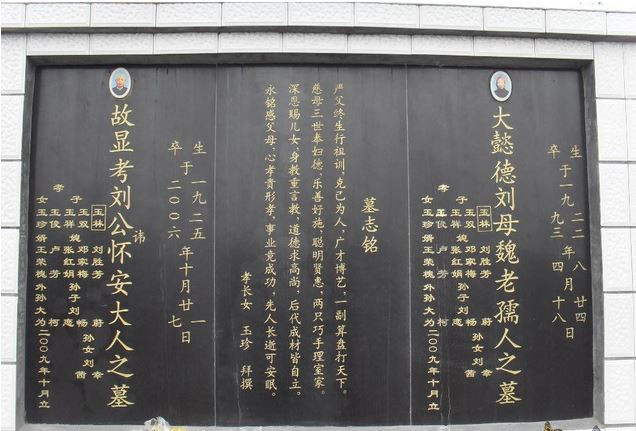 生 于一九二二年八月廿四日
卒 于一九九三年四月十八日
大懿德刘母魏老孺人之墓
玉林 刘胜芳 蔚
孝子 玉双 媳 邓家梅 孙子刘 畅 孙女刘 幸
玉祥 张红娟 茜
玉俊 卢芳 柯
女玉珍 婿王荣槐 外孙大为 二00九年十月立
墓志铭
严父终生行祖训，克已为人，广才博艺，一副算盘打天下。
慈母三世奉妇德，乐善好施，聪明贤惠，两只巧手理室家。
深恩赐儿女，身教重言教，道德求高尚，后代成材皆自立。
永铭感父母，心孝贵形孝，事业竟成功，先人长逝可安眠。
孝长女 玉珍 拜撰
生 于一九二五年十月廿一日
卒 于二00六年十月廿七日
故显考刘公讳怀安大人之墓
玉林 刘胜芳 蔚
孝子 玉双 媳 邓家梅 孙子刘 畅 孙女刘 幸
玉祥 张红娟 茜
玉俊 卢芳 柯
女玉珍 婿王荣槐 外孙大为 二00九年十月立